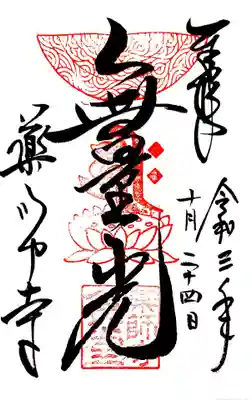 奉拝
令和三年
十月二十四日
無量光
薬師寺